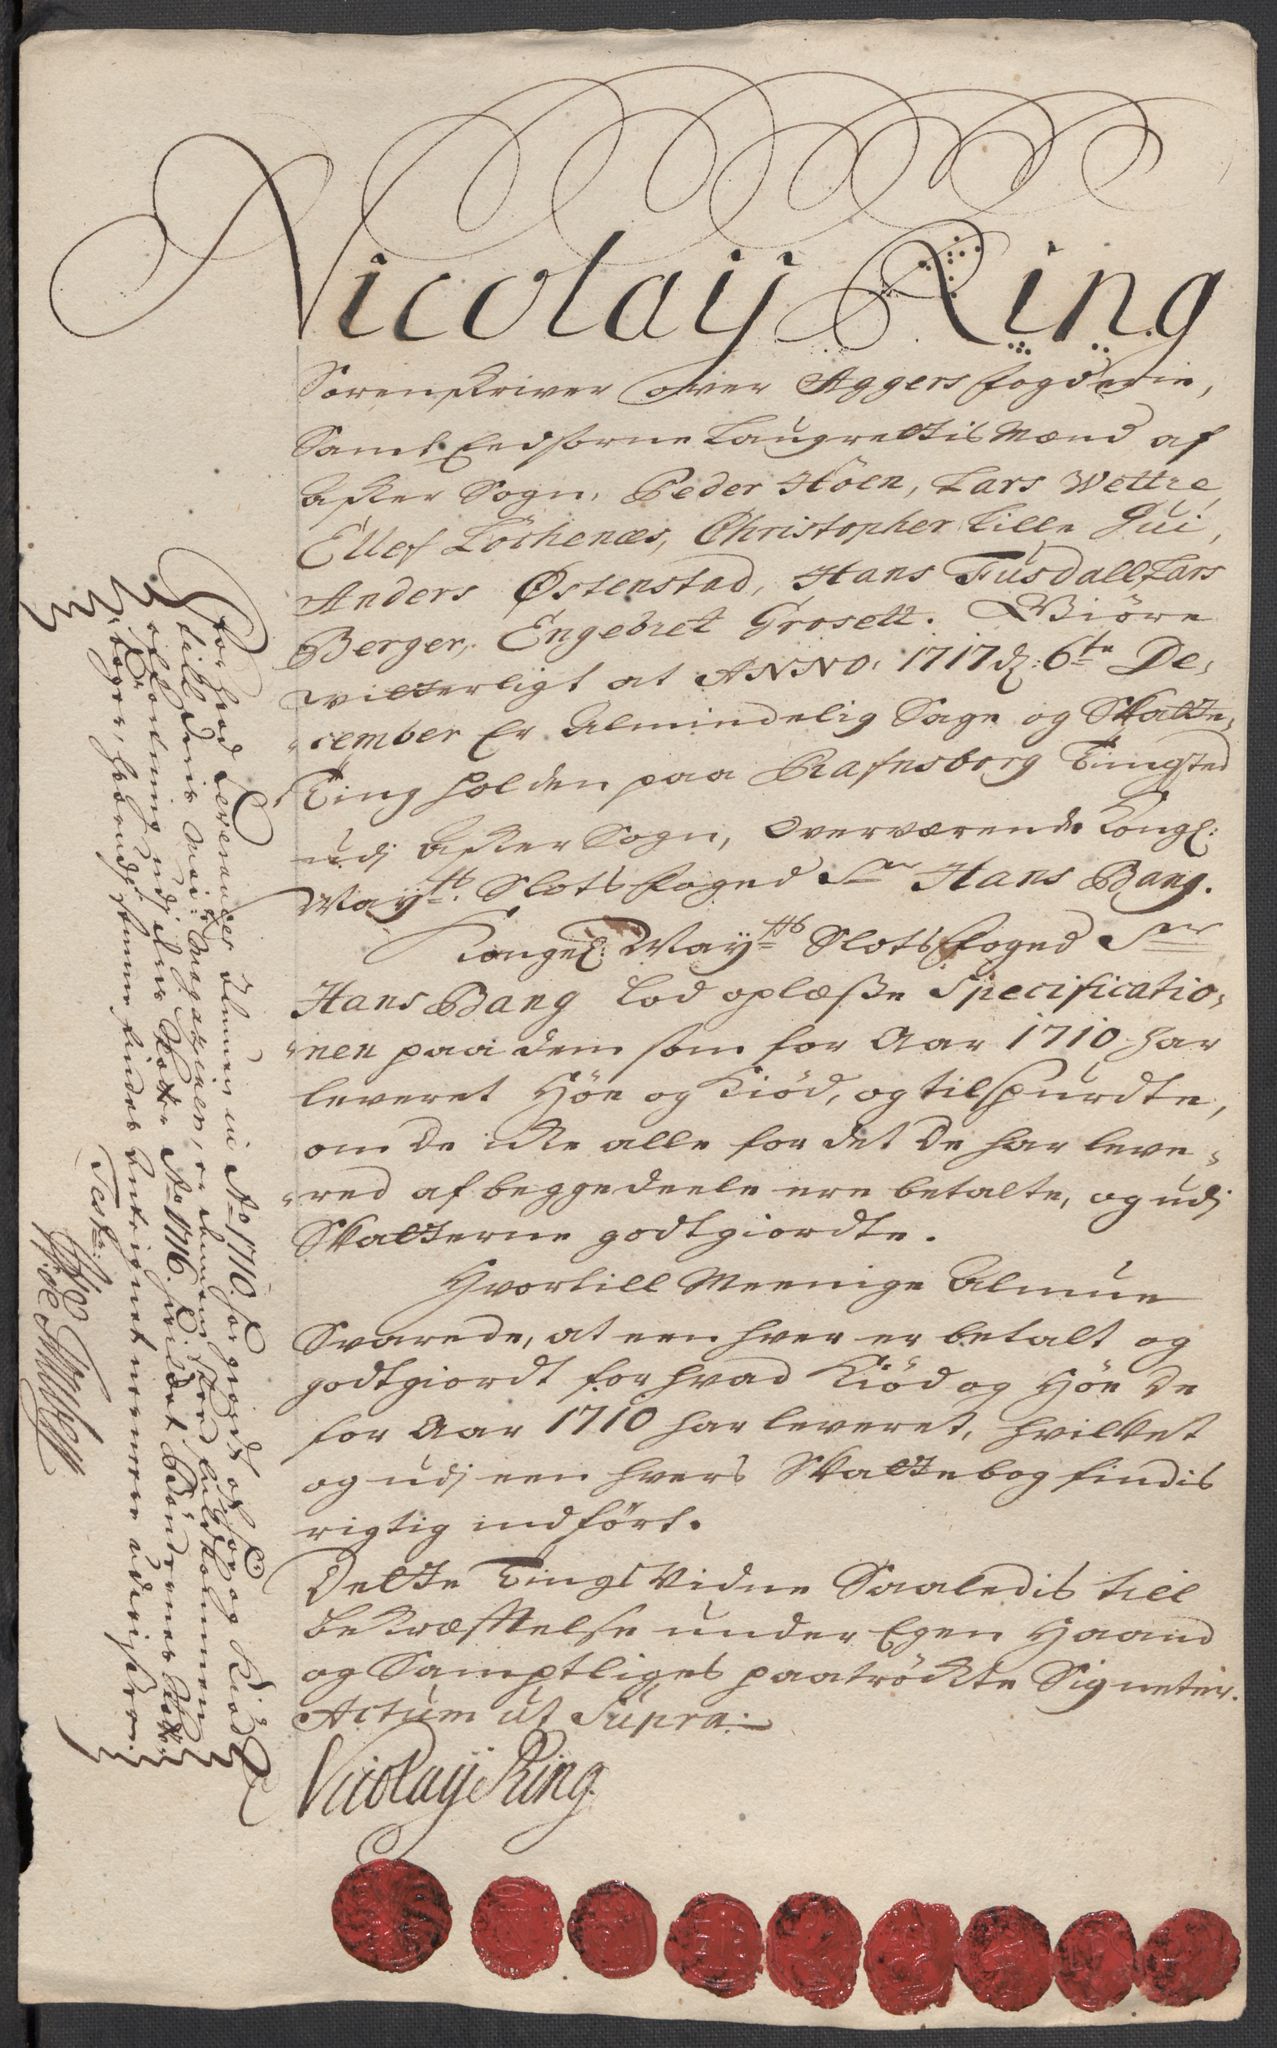 Nicolaÿ Ring
Sorenskriver over Aggers fogderie,
Samt Eedsorne Laugrettis Mænd af
Asker Sogn, Peder Höen, Lars Wettre,
Ellef Löchenæs, Christopher Lille Gui,
Anders Østenstad, Hans Fusdall, Lars
Berger, Engebret Grosett. Giöre
witterligt at ANNO. 1717 d: 6te De,
cember Er Almindelig Sage og Skatte,
Ting holden paa Rafnsborg Tingsted
udj Asker Sogn, Overværende Kongl:
Maytts. Slotsfoged Sr Hans Bang.
Kongel: Maytts Slotsfoged Sr
Hans Bang lod oplæsse Specificatio,
nen paa dem som for Aar 1710 har
leveret Höe og Kiöd, og tilspurdte,
om De icke alle for det De har leve,
red af beggedeele ere betalte, og udj
Skatterne godtgiordte.
Hvortill Meenige Almue
Svarede, at een hver er betalt og
godtgiordt for hvad Kiöd og Höe De
for Aar 1710 har leveret, hvilket
og udj een hvers Skattebog findis
rigtig indfört.
Dette Tings Vidne Saaledis till
bekræfftelse under Egen Haand
og Samptliges paatröckte Signeter.
Actum ut Supra.
Nicolaÿ Ring.
for hvad Leverancer Almuen in Ao 1710. har giordt af Höe og Kiöd
till Magazinen, er
udj Ao 1716. Böndernes
Test: